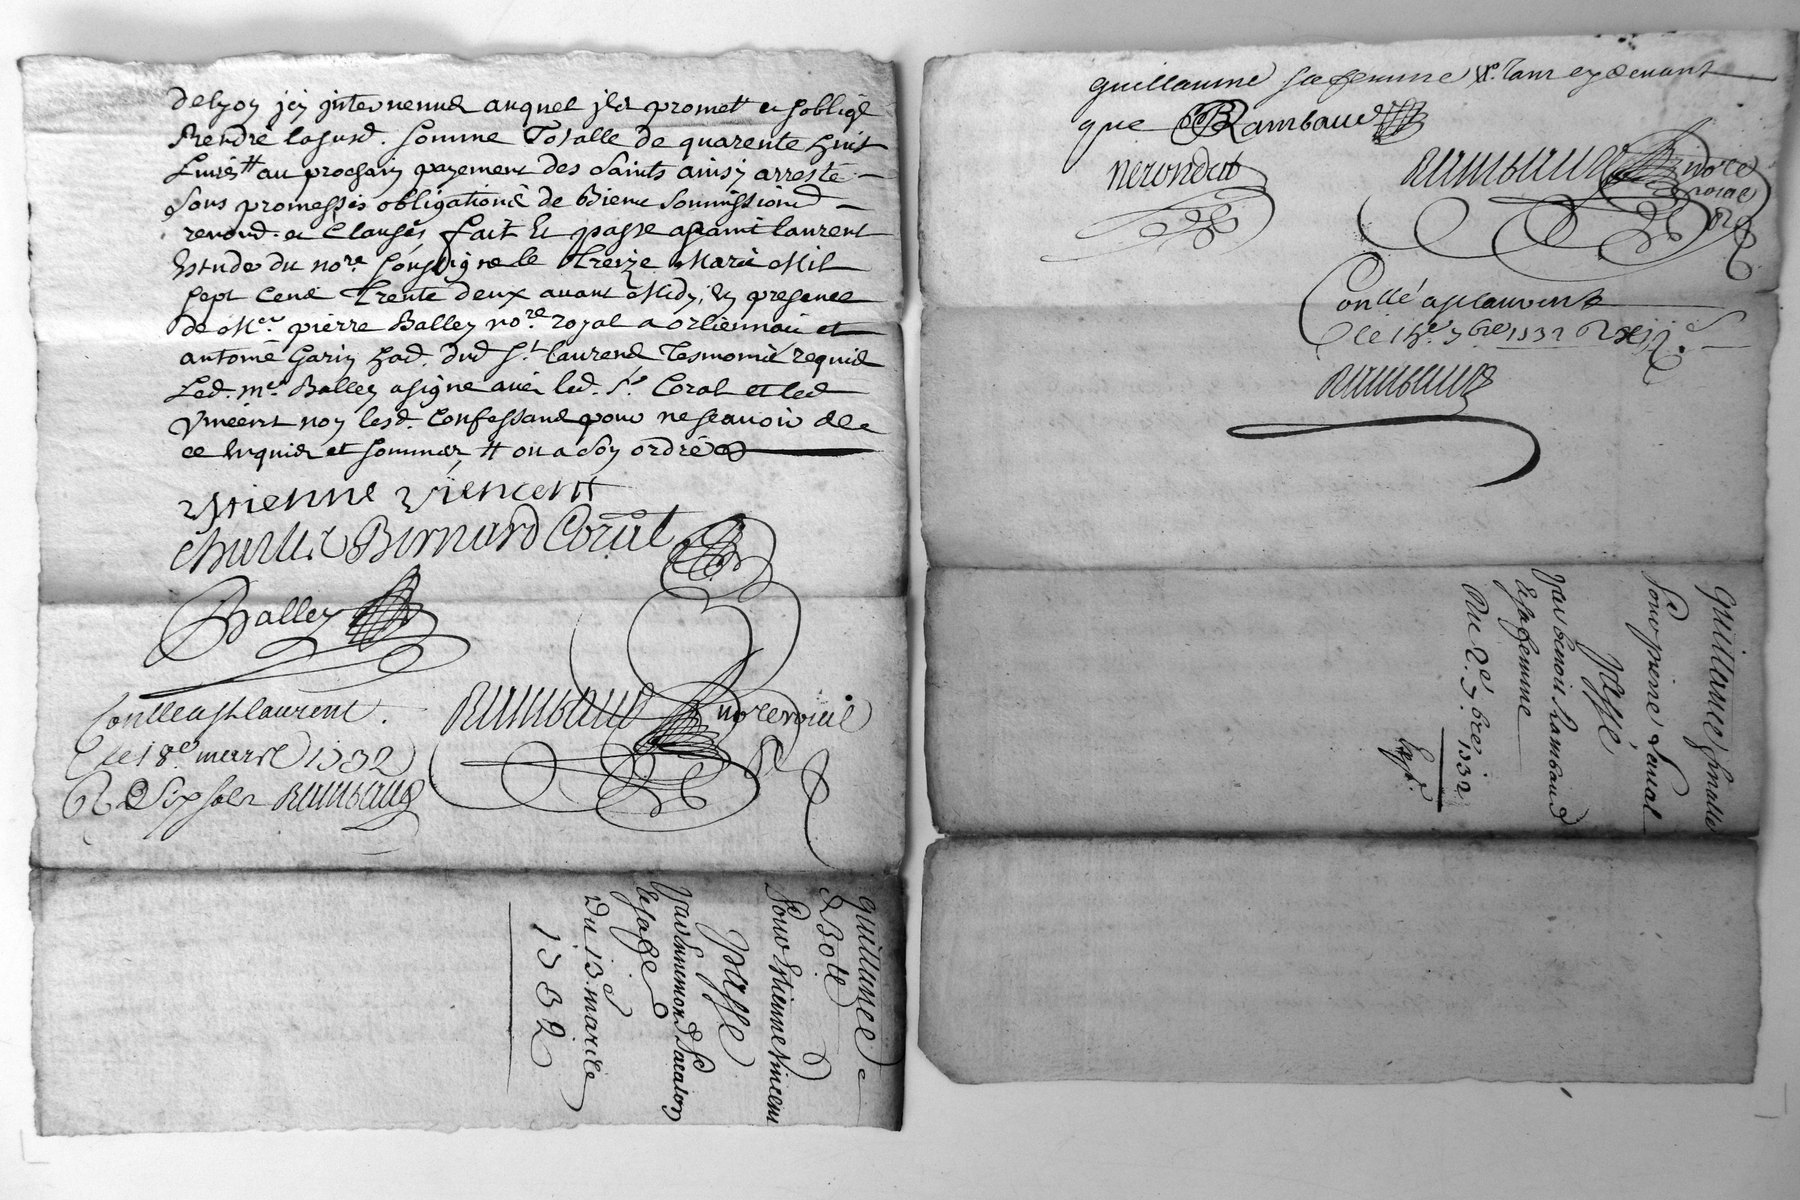 delyon icy intervenue auquel ils promett et soblige
Rendre lasusd. somme Totalle de quarente huit
Livres tt au prochain payement des saints ainsy arresté
sous promesses obligations de Biens soumissions
renond. et Clauses fait Et passé a saint laurent
Estude du nore soussigne le treize Mars Mil
sept Cens Trente deux avant Midy, En presence
de Mer pierre Balley nore royal a orliennas et
antoine Garin had. dud St. laurend Tesmoins requis
Led. mer Balley a signe avec led. Sr Coral et led
Vincent non lesd. Confessans pour ne scavoir de
ce Enquis et sommez tt ou a son ordre
Estienne Viencent
Charles Bernard Coral
Balley
Conlle a st laurent.
le 18e mars 1732
R Six sols Rambaud
Rambaud nore royal
quittance
&Bolt
Pour Estienne Vincent
passé
Du 13e mars
1732
guillaume sa femme tant cydevant
que Rambaud
nerondat
Rambaud nore
royal
Conllé a st laurent
le 1732
Rambaud
quittance finalle
Pour pierre
passé
Par benoit Rambaud
Et sa femme
Du 7bre 1732
Exp.